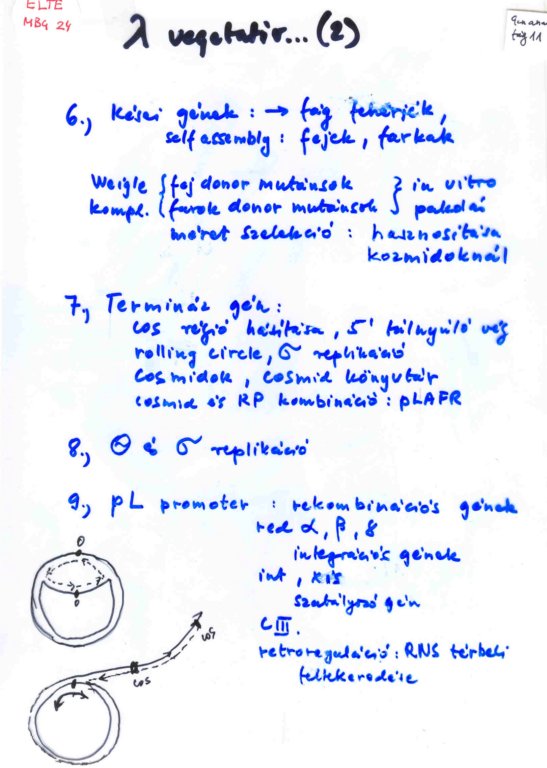 ELTE
MBG 24
λ vegetatív... (2)
fág 11
6., Kései gének : → fág fehérjék,
self assembly : fejek, farkak
Weigle { fej donor mutánsok } in vitro
kompl. { farok donor mutánsok } pakolás
méret szelekció : hasznosítása
kozmidoknál
7., Termináz gén :
cos régió hasítása, 5' túlnyúló vég
rolling circle, σ replikáció
Cosmidok, cosmid könyvtár
cosmid és RP kombináció : pLAFR
8., Θ és σ replikáció
9., pL promoter : rekombinációs gének
red α, β, γ
integrációs gének
int, xis
szabályzó gén
CIII.
retroreguláció : RNS térbeli
feltekeredése
θ
θ
cos
cos